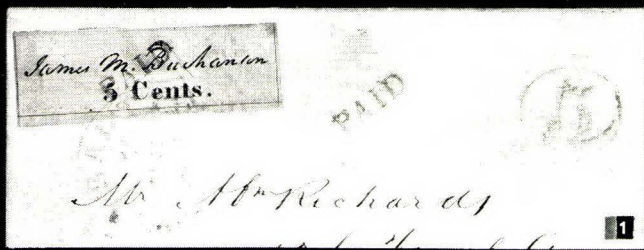 James M. Buchanan
5 Cents.
PAID
5
Mr Wm Richards
1